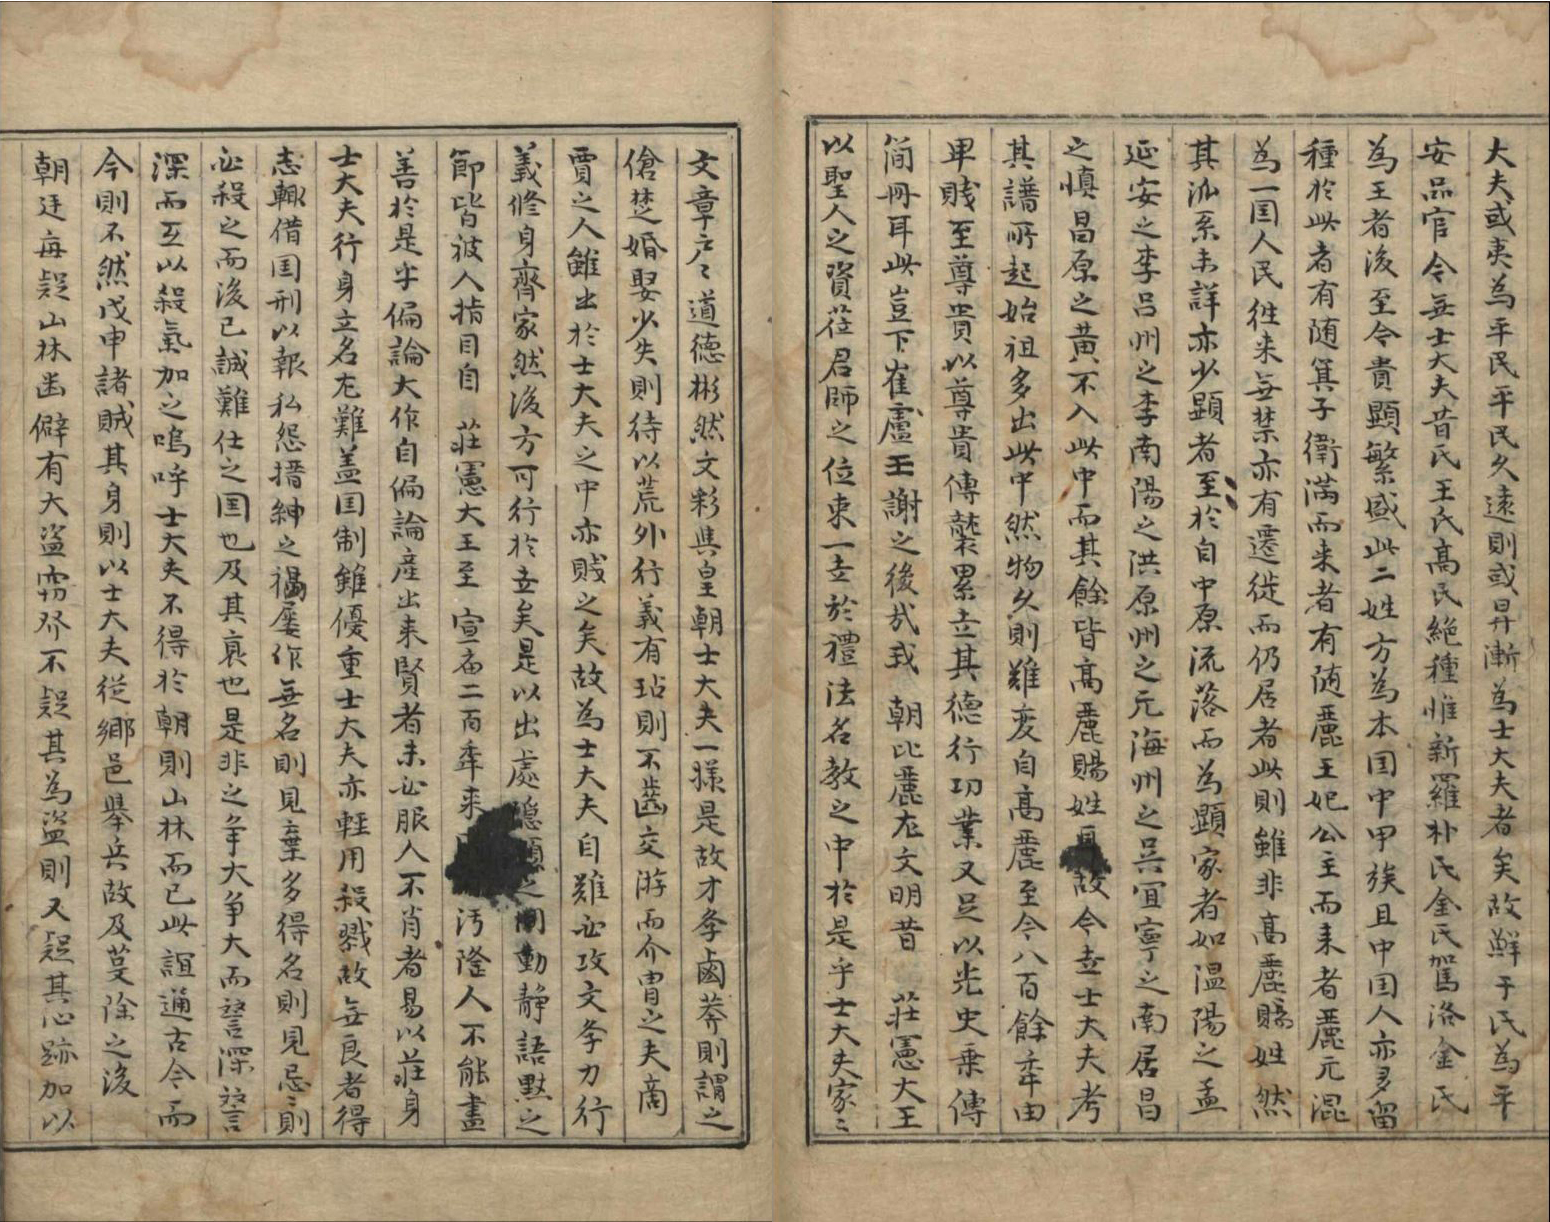 大夫或夷為平民平民久遠則或昇漸為士大夫者矣故鮮于氏為平
安品官令無士大夫昔氏王氏高氏絶種惟新羅朴氏金氏駕洛金氏
為王者後至今貴顯繁盛此二姓方為本国中甲族且中国人亦多留
種於此者有随箕子衛滿而来者有随麗王妃公主而来者麗元混
為一国人民徃来無禁亦有遷徙而仍居者此則雖非高麗賜姓然
其泒系未詳亦少顯者至於自中原流落而為顕家者如温陽之孟
延安之李呂州之李南陽之洪原州之元海州之吳冝寧之南居昌
之慎昌原之黄不入此中而其餘皆高麗賜姓故今世士大夫考
其譜所起始祖多出此中然物久則難変自高麗至今八百餘年由
卑賤至尊貴以尊貴傳襲累世其德行功業又足以光史乗傳
簡冊耳此豈下崔盧王謝之後㢤我 朝比麗尤文明昔 莊憲大王
以聖人之資莅君師之位束一世於禮法名教之中於是乎士大夫家〻
文章戶〻道德彬然文彩與皇朝士大夫一㨾是故才孝鹵莽則謂之
傖楚婚娶少失則待以荒外行義有玷則不齒交游而介胄之夫商
賈之人雖出於士大夫之中亦賤之矣故為士大夫自難必攻文孝力行
義修身齊家然後方可行於世矣是以出處隱顯之間動静語默之
節皆被人指目自 莊憲大王至 宣庙二百年来 汚隆人不能盡
善於是乎偏論大作自偏論産出来賢者未必服人不肖者易以莊身
士大夫行身立名尤難盖国制雖優重士大夫亦輕用殺戮故無良者得
志輙借国刑以報私怨搢紳之禍屡作無名則見棄多得名則見忌〻則
必殺之而後已誠難仕之国也及其衰也是非之争大争大而讐深讐
深而互以殺氣加之嗚呼士大夫不得於朝則山林而已此誼通古今而
今則不然戊申諸賊其身則以士大夫從鄉邑舉兵故及芟除之後
朝廷每疑山林幽僻有大盗窃發不疑其為盗則又疑其心跡加以